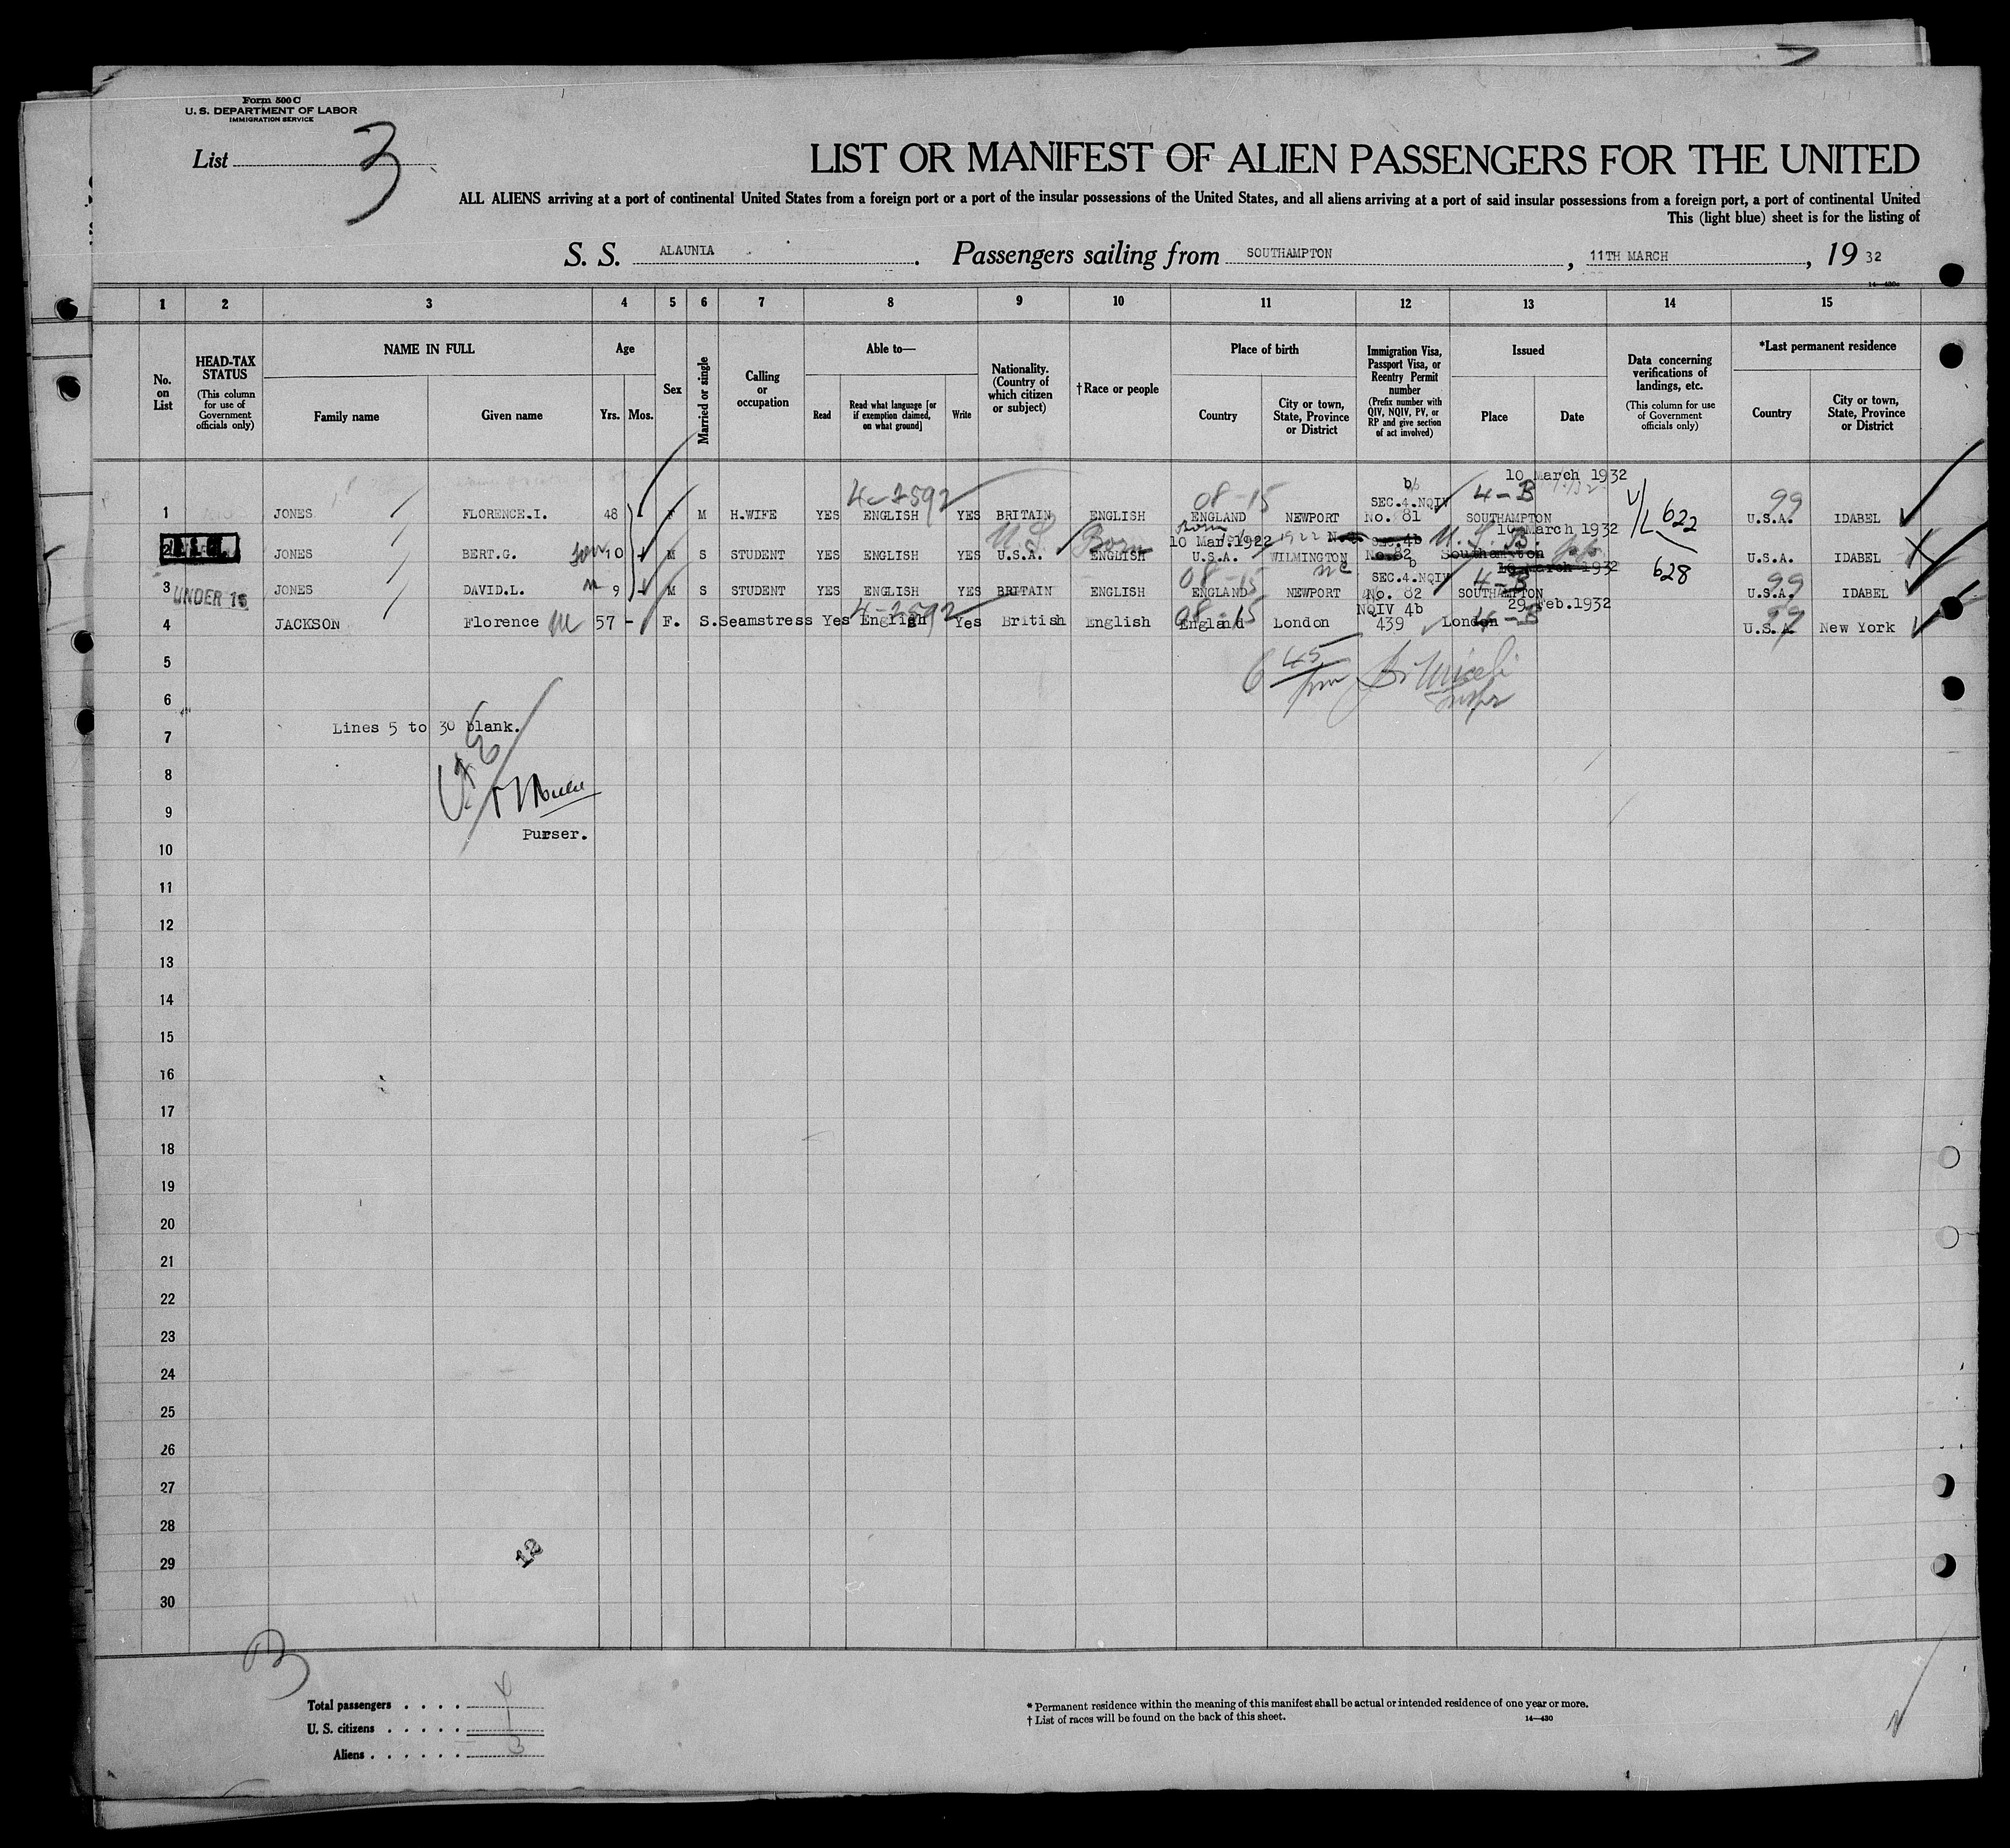 Form 500 C
U. S. DEPARTMENT OF LABOR
IMMIGRATION SERVICE
List 3
LIST OR MANIFEST OF ALIEN PASSENGERS FOR THE UNITED
ALL ALIENS arriving at a port of continental United States from a foreign port or a port of the insular possessions of the United States, and all aliens arriving at a port of said insular possessions from a foreign port, a port of continental United
This (light blue) sheet is for the listing of
S. S. ALAUNIA . Passengers sailing from SOUTHAMPTON , 11TH MARCH , 19 32
14—430c
1 2 3 4 5 6 7 8 9 10 11 12 13 14 15
No. on List
HEAD-TAX STATUS (This column for use of Government officials only)
NAME IN FULL
Family name Given name
Age
Yrs. Mos.
Sex
Married or single
Calling or occupation
Able to—
Read
Read what language [or if exemption claimed, on what ground]
Write
Nationality. (Country of which citizen or subject)
†Race or people
Place of birth
Country
City or town, State, Province or District
Immigration Visa, Passport Visa, or Reentry Permit number (Prefix number with QIV, NQIV, PV, or RP and give section of act involved)
Issued
Place Date
Data concerning verifications of landings, etc. (This column for use of Government officials only)
*Last permanent residence
Country
City or town, State, Province or District
4-2592 08-15 b SEC.4.NQIV 4-B 10 March 1932 V/L 622 99
1 JONES FLORENCE.I. 48 F M H.WIFE YES ENGLISH YES BRITAIN ENGLISH ENGLAND NEWPORT No. 81 SOUTHAMPTON U.S.A. IDABEL
U.S. Born Born 10 Mar.1922 Sec.4b U.S.B. 10 March 1932
2 JONES BERT.G. son 10 M S STUDENT YES ENGLISH YES U.S.A. ENGLISH U.S.A. WILMINGTON NC No.82 Southampton U.S.A. IDABEL
08-15 b SEC.4.NQIV 4-B 10 March 1932 628 99
3 UNDER 16 JONES DAVID.L. 9 M S STUDENT YES ENGLISH YES BRITAIN ENGLISH ENGLAND NEWPORT No. 82 SOUTHAMPTON U.S.A. IDABEL
4-2592 08-15 NQIV 4b 4-B 29 Feb.1932 99
4 JACKSON Florence 57 - F. S. Seamstress Yes English Yes British English England London 439 London U.S.A. New York
5
6
Lines 5 to 30 blank.
7
8
9
Purser.
10
11
12
13
14
15
16
17
18
19
20
21
22
23
24
25
26
27
28
29
12
30
B
Total passengers . . . . 4
U. S. citizens . . . . . 1
Aliens . . . . . . 3
* Permanent residence within the meaning of this manifest shall be actual or intended residence of one year or more.
† List of races will be found on the back of this sheet. 14—430